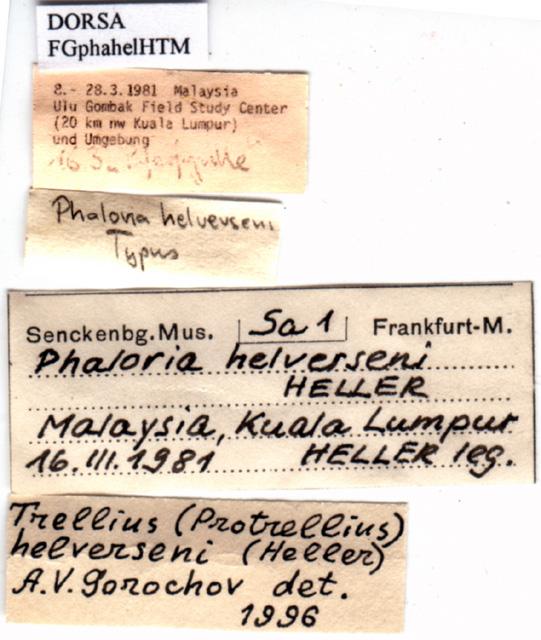 DORSA
FGphahelHTM
8.- 28.3.1981 Malaysia
Ulu Gombak Field Study Center
(20 km nw Kuala Lumpur)
und Umgebung
16.3.
Phaloria helverseni
Typus
Senckenbg. Mus. Sa 1 Frankfurt-M.
Phaloria helverseni
HELLER
Malaysia, Kuala Lumpur
16.III.1981 HELLER leg.
Trellius (Protrellius)
helverseni (Heller)
A.V. Gorochov det.
1996